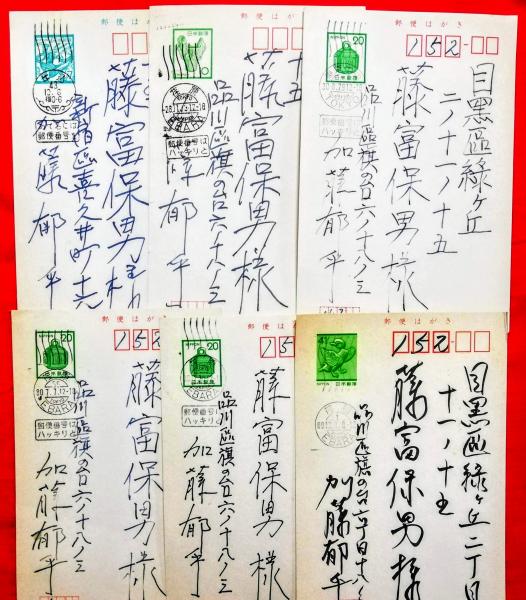 郵便はがき
藤富保男様
新宿區喜久井町十六
加藤郁乎
あて名には
郵便番号は
ハッキリと
郵便はがき
十五
藤富保男様
品川區旗の台六ノ十八ノ三
郁乎
日本郵便
郵便番号は
ハッキリと
郵便はがき
152
目黒區緑ヶ丘
二ノ十一ノ十五
藤富保男様
品川區旗の台六ノ十八ノ三
加藤郁乎
NIPPON
20
日本郵便
郵便番号は
ハッキリと
郵便はがき
15
藤富保男様
品川區旗の台六ノ十八ノ三
加藤郁乎
NIPPON
20
日本郵便
EBARA
郵便番号は
ハッキリと
郵便はがき
15
藤富保男様
品川區旗の台六ノ十八ノ三
加藤郁乎
20
日本郵便
EBARA
郵便はがき
152
目黒區緑ヶ丘二丁目
十一ノ十五
藤富保男様
品川區旗の台六丁目十八ノ
加藤郁乎
41
NIPPON